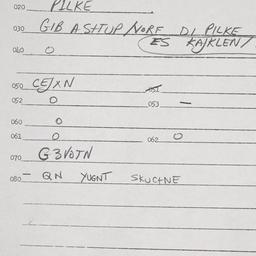 020 PILKE
030 GIB A SHTUP/NORF DI PILKE
(ES KAJKLEN/
040 O
050 CE/XN
051
052 O 053 —
060 O
061 O 062 O
070 G3VOTN
080 QN YUGNT SKUCTNE